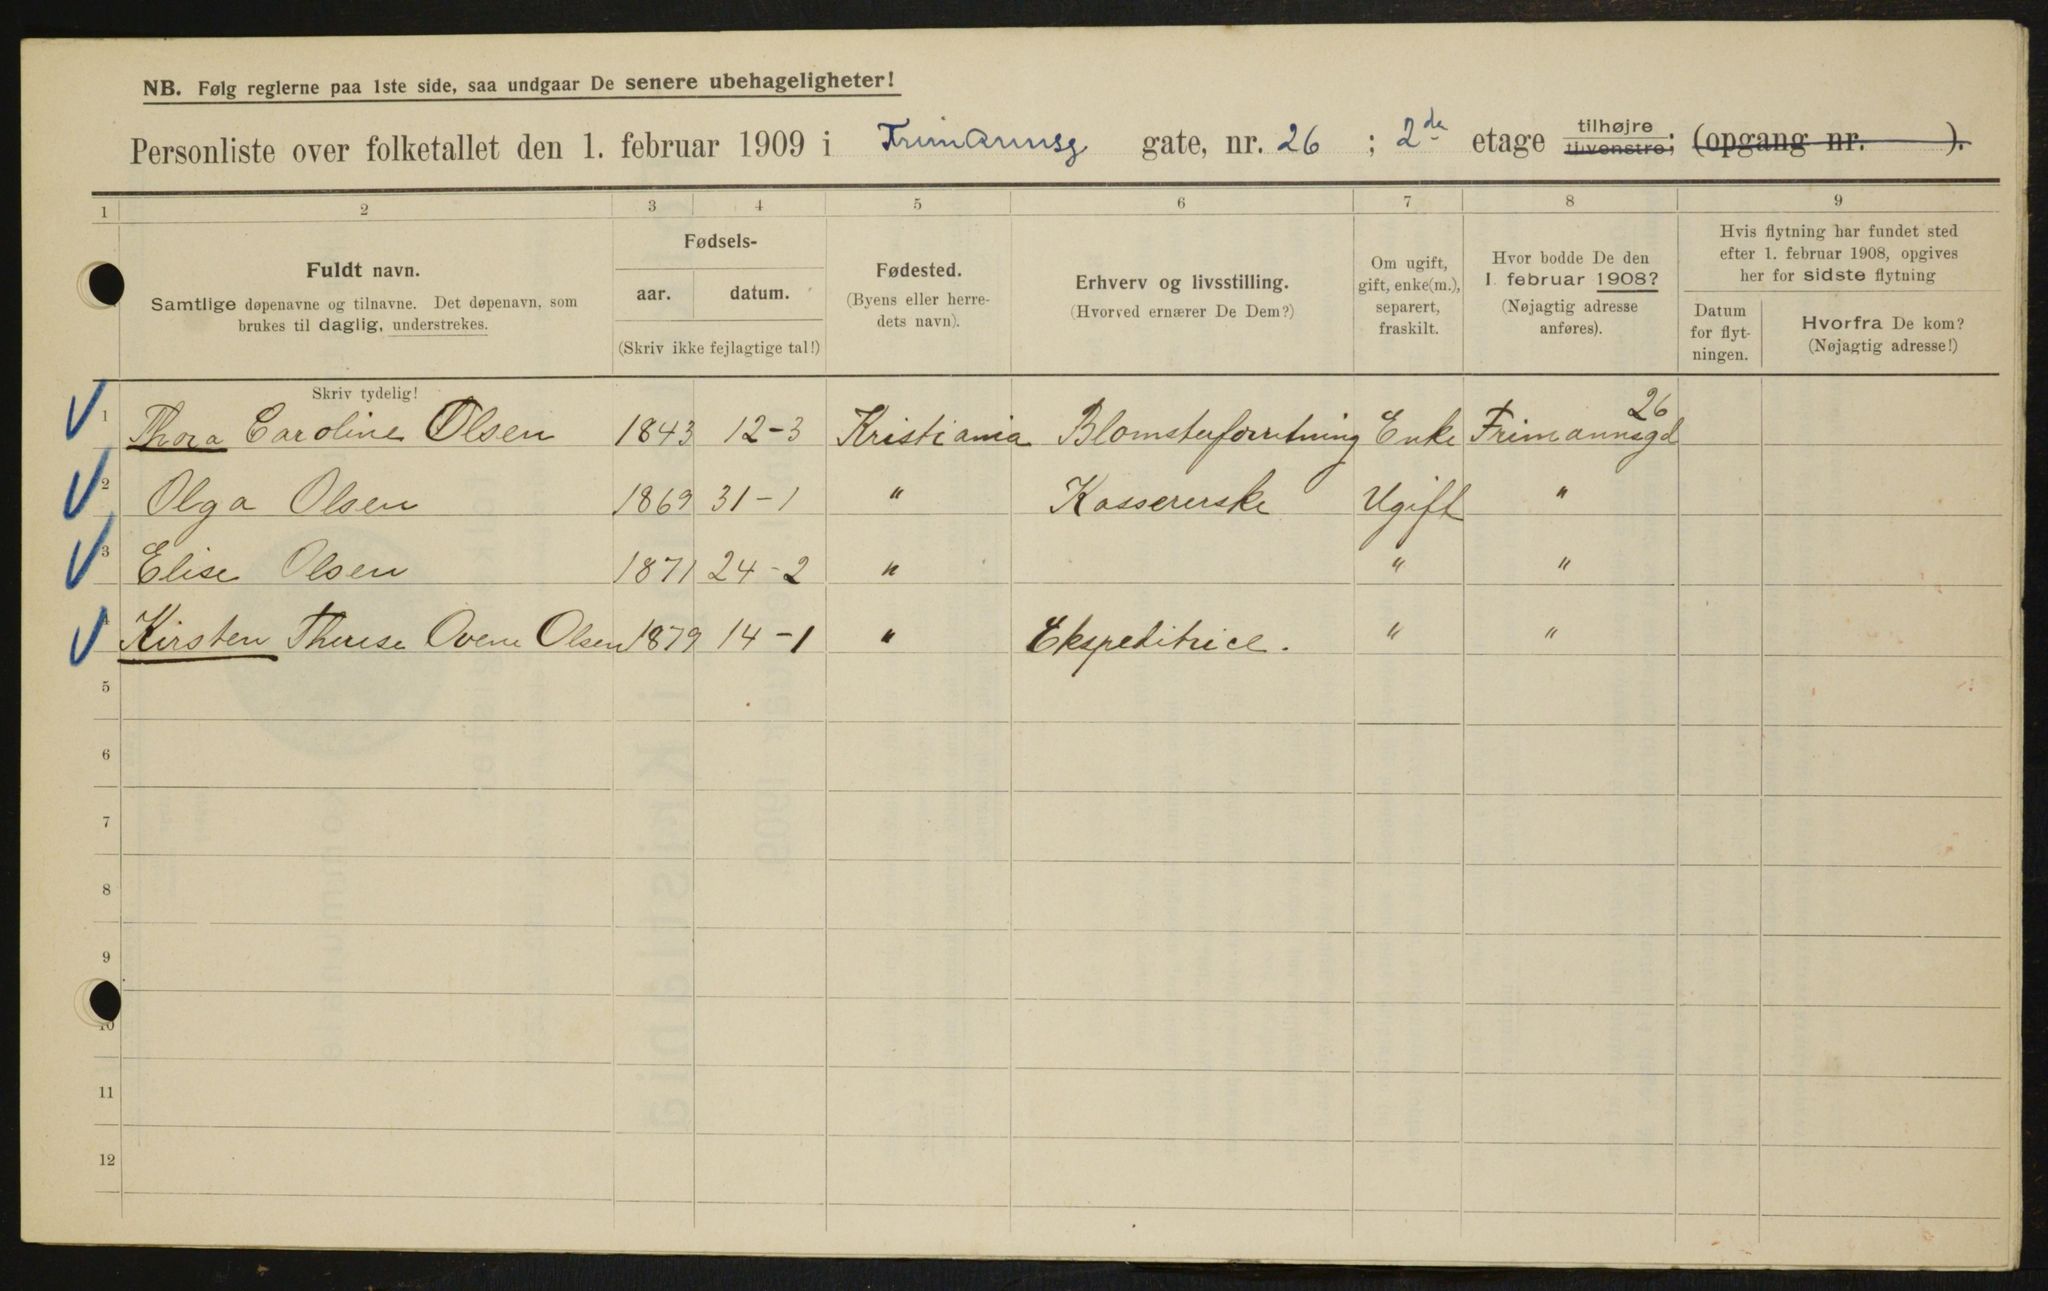 NB. Følg reglerne paa 1ste side, saa undgaar De senere ubehageligheter!
Personliste over folketallet den 1. februar 1909 i Frimannsg gate, nr. 26 ; 2de etage tilhøjre tilvenstre; (opgang nr. ).
1 2 3 4 5 6 7 8 9
Fuldt navn.
Samtlige døpenavne og tilnavne. Det døpenavn, som
brukes til daglig, understrekes.
Fødsels-
aar. datum.
(Skriv ikke fejlagtige tal!)
Fødested.
(Byens eller herre-
dets navn).
Erhverv og livsstilling.
(Hvorved ernærer De Dem?)
Om ugift,
gift, enke(m.),
separert,
fraskilt.
Hvor bodde De den
1. februar 1908?
(Nøjagtig adresse
anføres).
Hvis flytning har fundet sted
efter 1. februar 1908, opgives
her for sidste flytning
Datum
for flyt-
ningen.
Hvorfra De kom?
(Nøjagtig adresse!)
Skriv tydelig!
1 Thora Caroline Olsen 1843 12-3 Kristiania Blomsterforretning Enke Frimannsgd 26
2 Olga Olsen 1869 31-1 " Kassererske Ugift "
3 Elise Olsen 1871 24-2 " " "
4 Kirsten Therese Ovene Olsen 1879 14-1 " Ekspeditrice. " "
5
6
7
8
9
10
11
12